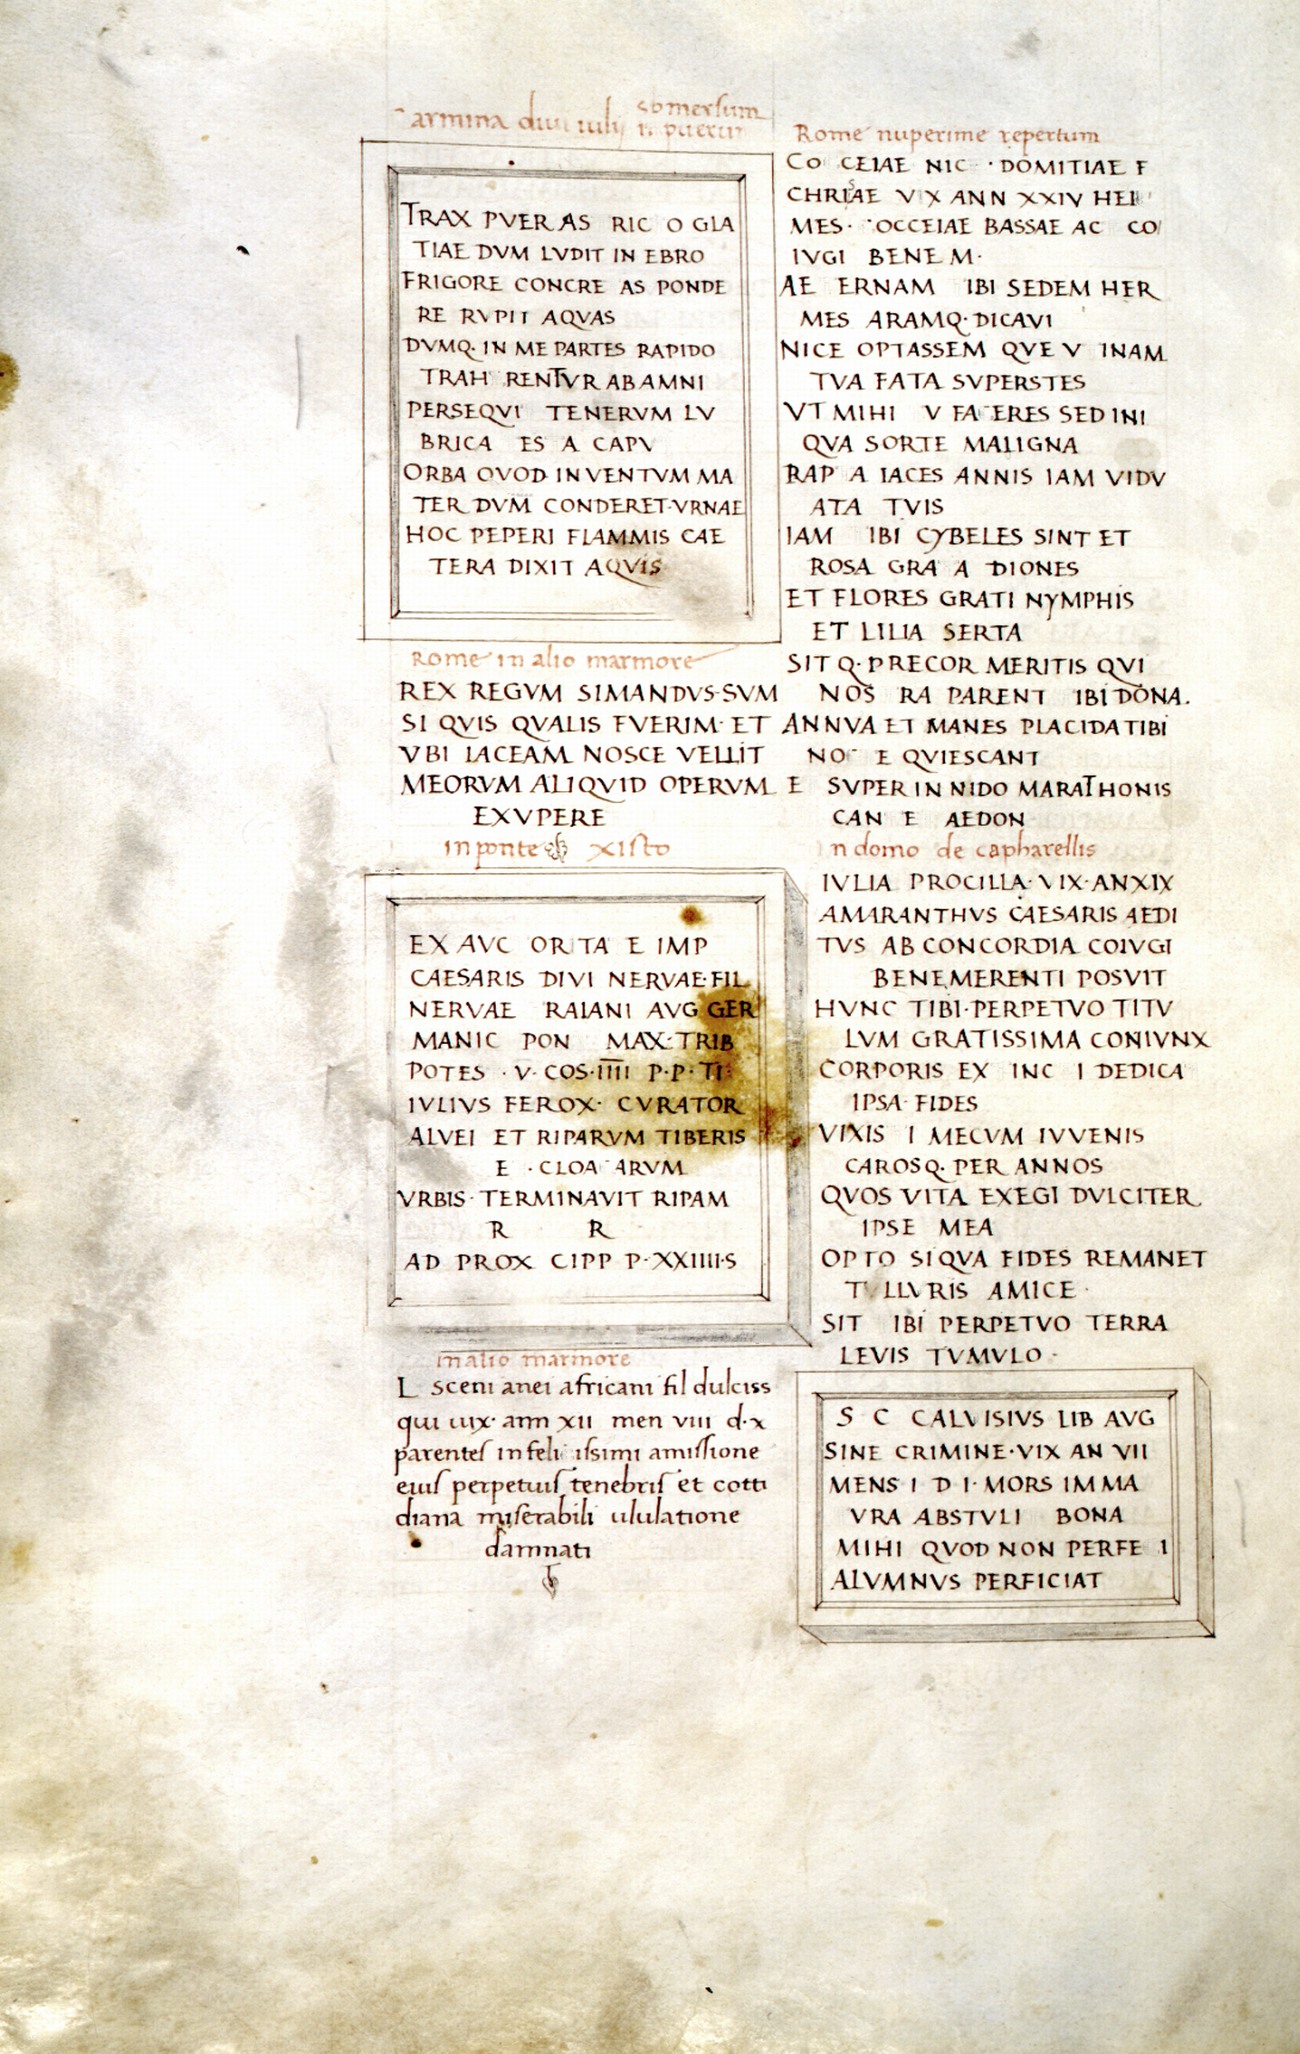 Carmina divi iulij sbmersum
in puerum
TRAX PVER AS RIC O GLA
TIAE DVM LVDIT IN EBRO
FRIGORE CONCRE AS PONDE
RE RVPIT AQVAS
DVMQ· IN ME PARTES RAPIDO
TRAH RENTVR AB AMNI
PERSEQVI TENERVM LV
BRICA ES A CAPV
ORBA QVOD INVENTVM MA
TER DVM CONDERET·VRNAE
HOC PEPERI FLAMMIS CAE
TERA DIXIT AQVIS
Rome in alio marmore
REX REGVM SIMANDVS·SVM
SI QVIS QVALIS FVERIM· ET
VBI IACEAM NOSCE VELLIT
MEORVM ALIQVID OPERVM E
EXVPERE
in ponte xisto
EX AVC ORITA E IMP
CAESARIS DIVI NERVAE·FIL
NERVAE RAIANI AVG GER
MANIC PON MAX·TRIB
POTES · V· COS·IIII P·P· TI·
IVLIVS FEROX· CVRATOR
ALVEI ET RIPARVM TIBERIS
E · CLOA ARVM
VRBIS· TERMINAVIT RIPAM
R R
AD PROX CIPP P·XXIIII·S
in alio marmore
L sceni anei africani fil dulciss
qui uix· ann xii men viii d·x
parentes infeli issimi amissione
eius perpetuis tenebris et cotti
diana miserabili ululatione
damnati
Rome nuperime repertum
CO CEIAE NIC · DOMITIAE F
CHRISAE VIX ANN XXIV HER
MES· COCCEIAE BASSAE AC CO
IVGI BENE M·
AE ERNAM IBI SEDEM HER
MES ARAMQ· DICAVI
NICE OPTASSEM QVE V INAM
TVA FATA SVPERSTES
VT MIHI V FACERES SED INI
QVA SORTE MALIGNA
RAP A IACES ANNIS IAM VIDV
ATA TVIS
IAM IBI CYBELES SINT ET
ROSA GRA A DIONES
ET FLORES GRATI NYMPHIS
ET LILIA SERTA
SIT Q· PRECOR MERITIS QVI
NOS RA PARENT IBI DONA.
ANNVA ET MANES PLACIDA TIBI
NOC E QVIESCANT
SVPER IN NIDO MARATHONIS
CAN E AEDON
n domo de capharellis
IVLIA PROCILLA· VIX·AN XIX
AMARANTHVS CAESARIS AEDI
TVS AB CONCORDIA COIVGI
BENEMERENTI POSVIT
HVNC TIBI·PERPETVO TITV
LVM GRATISSIMA CONIVNX
CORPORIS EX INC I DEDICA
IPSA· FIDES
VIXIS I MECVM IVVENIS
CAROSQ· PER ANNOS
QVOS VITA EXEGI DVLCITER
IPSE MEA
OPTO SI QVA FIDES REMANET
T LLVRIS AMICE ·
SIT IBI PERPETVO TERRA
LEVIS TVMVLO ·
S C CALVISIVS LIB AVG
SINE CRIMINE·VIX AN VII
MENS I D I· MORS IMMA
VRA ABSTVLI BONA
MIHI QVOD NON PERFE I
ALVMNVS PERFICIAT